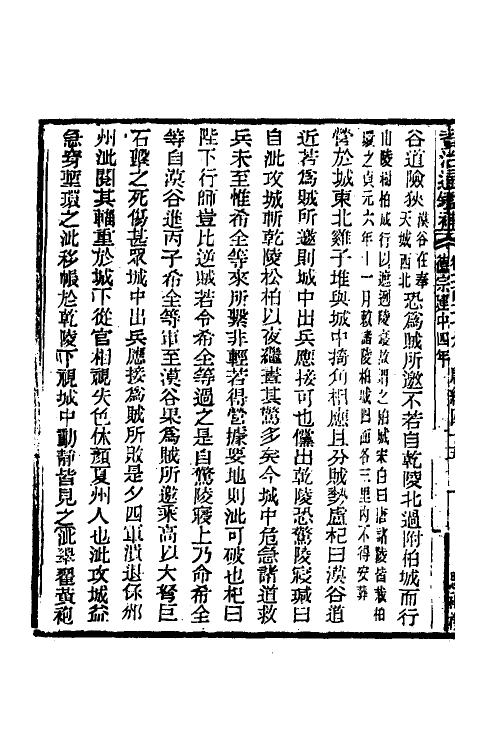 谷道險狹漠谷在奉天城西北恐爲賊所邀不若自乾陵北過附柏城而行
山陵樹柏成行以遮迾陵寢故謂之柏城宋白曰唐諸陵皆栽柏環之貞元六年十一月敕諸陵柏城四面各三里內不得安葬
營於城東北雞子堆與城中掎角相應且分賊勢盧杞曰漠谷道
近若爲賊所邀則城中出兵應接可也儻出乾陵恐驚陵寢瑊曰
自泚攻城斬乾陵松柏以夜繼晝其驚多矣今城中危急諸道救
兵未至惟希全等來所繫非輕若得營據要地則泚可破也杞曰
陛下行師豈比逆賊若令希全等過之是自驚陵寢上乃命希全
等自漠谷進丙子希全等軍至漠谷果爲賊所邀乘高以大弩巨
石擊之死傷甚眾城中出兵應接爲賊所敗是夕四軍潰退保邠
州泚閱其輜重於城下從官相視失色休顏夏州人也泚攻城益
急穿塹環之泚移帳於乾陵下視城中動靜皆見之泚擧翟黃袍